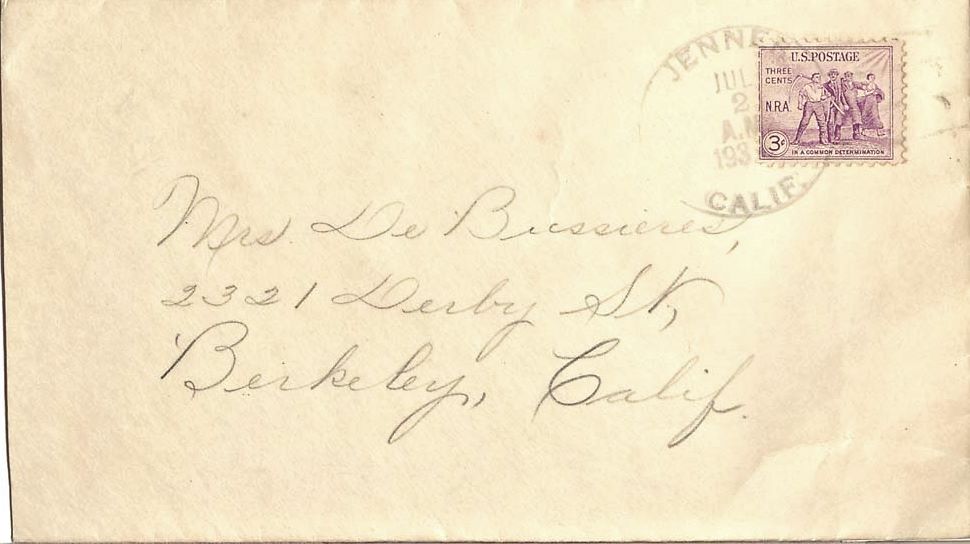 JENNER
JUL
2
A.M
193
CALIF.
U.S. POSTAGE
THREE
CENTS
N.R.A.
3¢
IN A COMMON DETERMINATION
Mrs. De Bussieres,
2321 Derby St,
Berkeley, Calif.